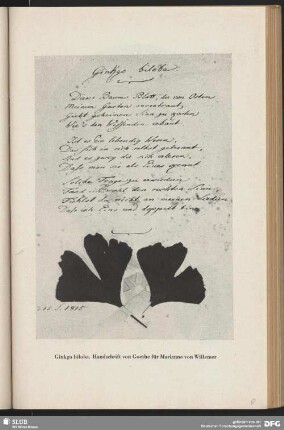 Ginkgo biloba.
Dieses Baums Blatt, der von Osten
Meinem Garten anvertraut,
Giebt geheimen Sinn zu kosten
Wie's den Wissenden erbaut.
Ist es Ein lebendig Wesen,
Das sich in sich selbst getrennt,
Sind es zwey die sich erlesen,
Dass man sie als Eines kennt.
Solche Frage zu erwiedern
Fand ich wohl den rechten Sinn,
Fühlst du nicht an meinen Liedern
Dass ich Eins und doppelt bin.
Ginkgo biloba. Handschrift von Goethe für Marianne von Willemer
SLUB
DFG